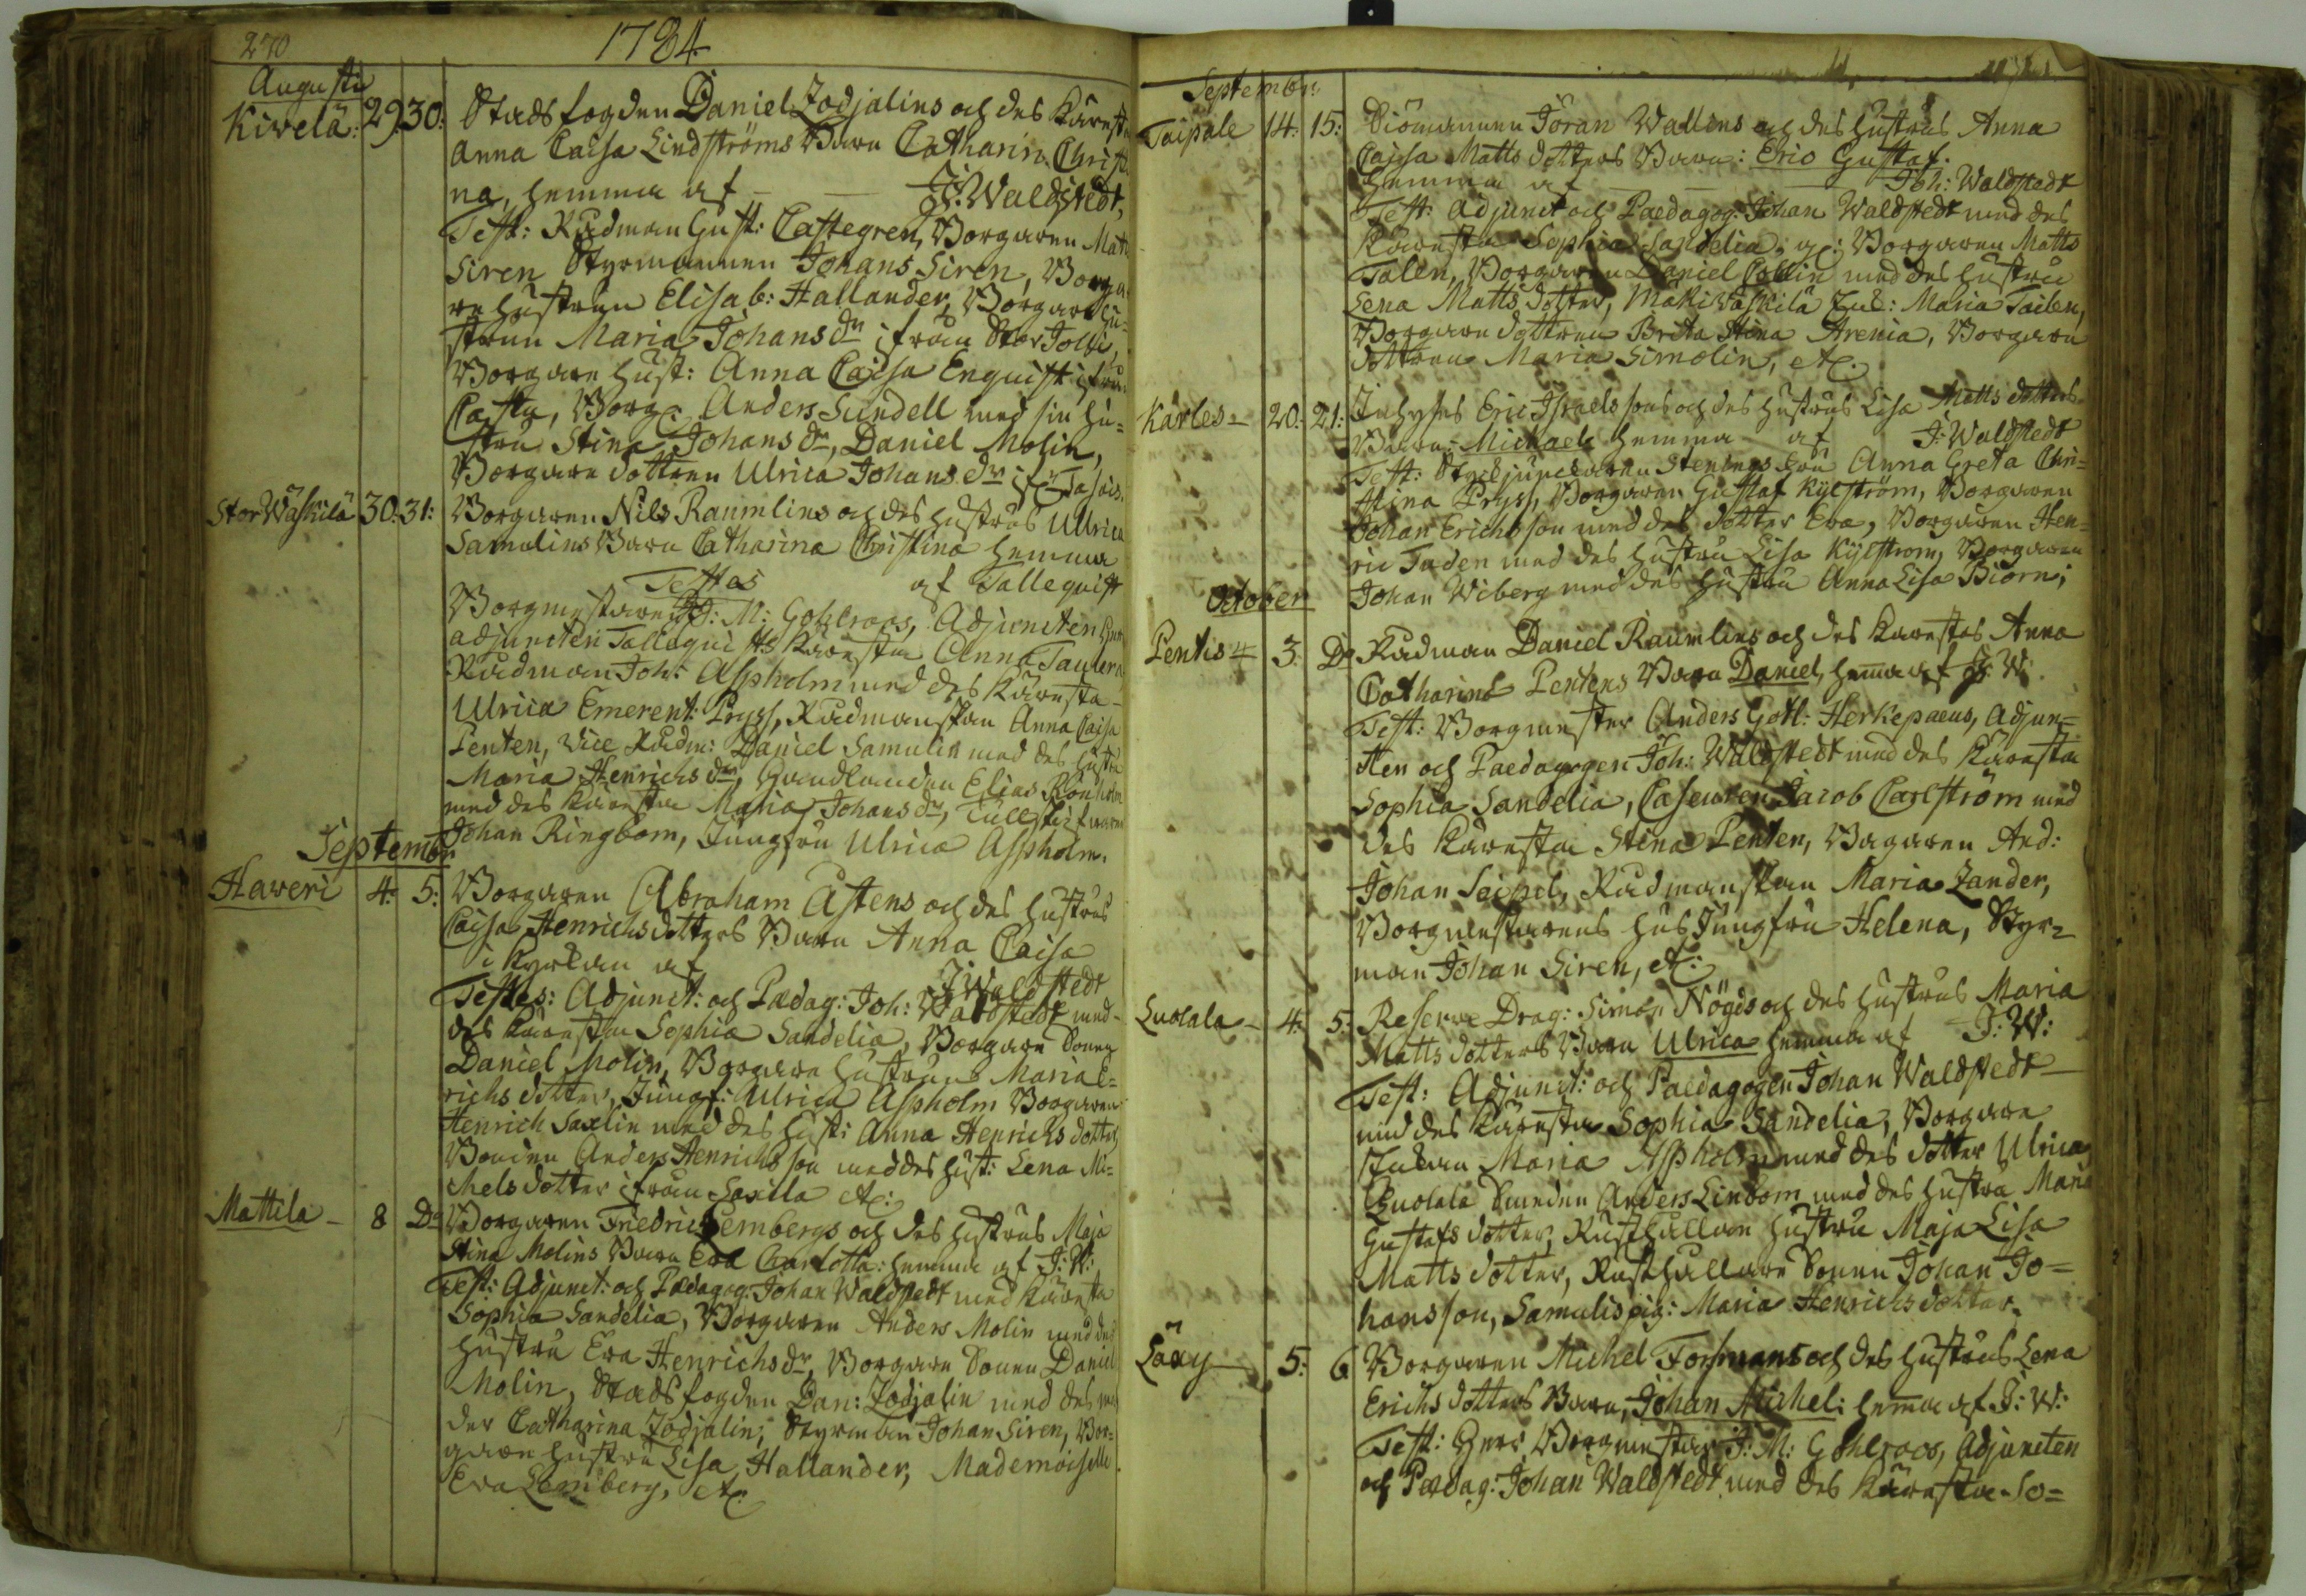 270
1784
Augusti
Kivelä: 29. 30: Stads fogden Daniel Zodjalins och des Käresta
Anna Caisa Lindströms Barn Catharin. Christi
na, hemma af — J: Waldstedt,
Test: Rådman Gust: Castegren, Borgaren Matt
Siren Styrmannen Johans Siren, Borga
re hustrun Elisab: Hallander, Borgare hu=
strun Maria Johans dr ifrån Stor Jolli,
Borgare hust: Anna Caisa Enquist ifrån
Casta, Borg: Anders Sundell med sin hu=
stru Stina Johans dr, Daniel Molin,
Borgare dottren Ulrica Johans dr
Stor Wäskilä 30: 31: Borgaren Nils Raumlins och des hustrus Ullrica
Samulins Barn Catharina Christina hemma
Testes af Tallequist
Borgmestaren J: M: Gohlroos, Adjuncten
adjuncten Tallequists Käresta Anna
Rådman Joh: Aspholm med des Käresta
Ulrica Emerent: Pryss, Rådmanskan Anna Caisa
Penten, Vice Rådm: Daniel Samulin med des hustru
Maria Henrichs dr, Handlanden Elias Rönholm
med des Käresta Maria Johans dr,
Johan Ringbom, Jungfru Ulrica Aspholm.
Septembr
Haveri 4: 5: Borgaren Abraham Astens och des hustrus
Caisa Henrichs dotters Barn Anna Caisa
i Kyrkan af J Waldstedt
Testes: Adjunct: och Pædag: Joh: Waldstedt med
des Käresta Sophia Sandelia, Borgare Sonen
Daniel Molin, Borgare hustrun Maria E=
richs dotter, Jungf: Ulrica Aspholm Borgaren
Henrich Saxlin med des hust: Anna Henrichs dotter
Bonden Anders Henrichs son med des hust: Lena Mi=
chels dotter ifrån Saxila etc:
Mattila — 8 Do Borgaren Friedric Lembergs och des hustrus Maja
Stina Molins Barn Eva Charlotta: hemma af J: W:
Test: Adjunct: och Pædagog: Johan Waldstedt med Käresta
Sophia Sandelia, Borgaren Anders Molin med des
hustru Eva Henrichs dr, Borgare Sonen Daniel
Molin, Stads fogden Dan: Zodjalin med des mo
der Catharina Zodjalin, Styrman Johan Siren, Bor=
gare hustru Lisa Hallander, Mademoiselle
Eva Lemberg, etc:
Septembr:
Taipale 14: 15: Båtsmannen Jöran Wallins och des hustrus Anna
Caisa Matts dotters Barn: Eric Gustaf.
hemma af — Joh: Waldstedt
Test: Adjunct och Paedagog: Johan Waldstedt med des
Käresta Sophia Sandelia; Borgaren Matts
Talen, Borgaren Daniel Collin med des hustru
Lena Matts dotter, Maria Tailen,
Borgare dottren Brita Stina Arenia, Borgare
dottren Maria Simolin, etc.
Karles — 20: 21: Inhyses Eric Israels sons och des hustrus Lisa Matts dotters
Barn: Michael hemma af J: Waldstedt
Test: Anna Greta Chri=
stina Pryss, Borgaren Gustaf Kylström, Borgaren
Johan Erichsson med des dotter Eva, Borgaren Hen=
ric Taden med des hustru Lisa Kylström, Borgaren
Johan Wiberg med des hustru Anna Lisa Biörn;
October
Pentis 3. Do Rådman Daniel Raumlins och des Kärestas Anna
Catharina Pentens Barn Daniel, hemma af J: W:
Test: Borgmester Anders Gotl: Herkepaeus, Adjun=
kten och Paedagogen Joh: Waldstedt med des Käresta
Sophia Sandelia, Caseuren Jacob Carlström med
des Käresta Stina Penten, Bagaren And:
Johan Seipel, Rådmanskan Maria Zander,
Borgmestarens hus Jungfru Helena, Styr=
man Johan Siren, etc:
Luolala — 4: 5: Reserve Drag: Simon Nögds och des hustrus Maria
Matts dotters Barn Ulrica hemma af J: W:
Test: Adjunct: och Paedagogen Johan Waldstedt
med des Käresta Sophia Sandelia, Borgare
Maria Aspholm med des dotter Ulrica
Luolala Smeden Anders Linbom med des hustru Maria
Gustafs dotter, Rusthållare hustru Maja Lisa
Matts dotter, Rusthållare Sonen Johan Jo=
hansson, Samulis pig: Maria Henrichs dotter.
Löxy — 5: 6 Borgaren Michel Forsmans och des hustrus Lena
Erichs dotters Barn, Johan Michel: hemma af J: W:
Test: Herr Borgmestar J: M: Gohlroos, Adjuncten
och Pædag: Johan Waldstedt med des Käresta So=